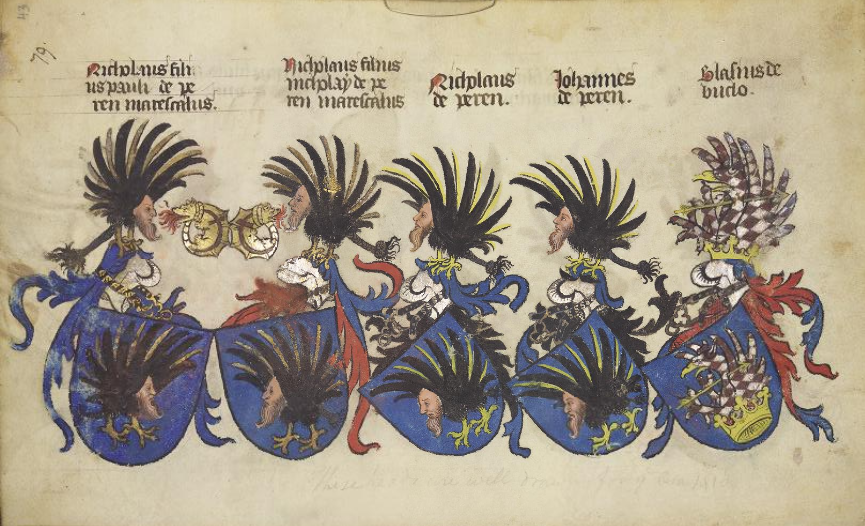 43
79.
Nicholaus filii
us pauli de pe
ren marescalus.
Nicholaus filius
nicolay de pe
ren marescalus
Nicholaus
de peren.
Johannes
de peren.
Blasius de
buclo.
These heads are well drawn